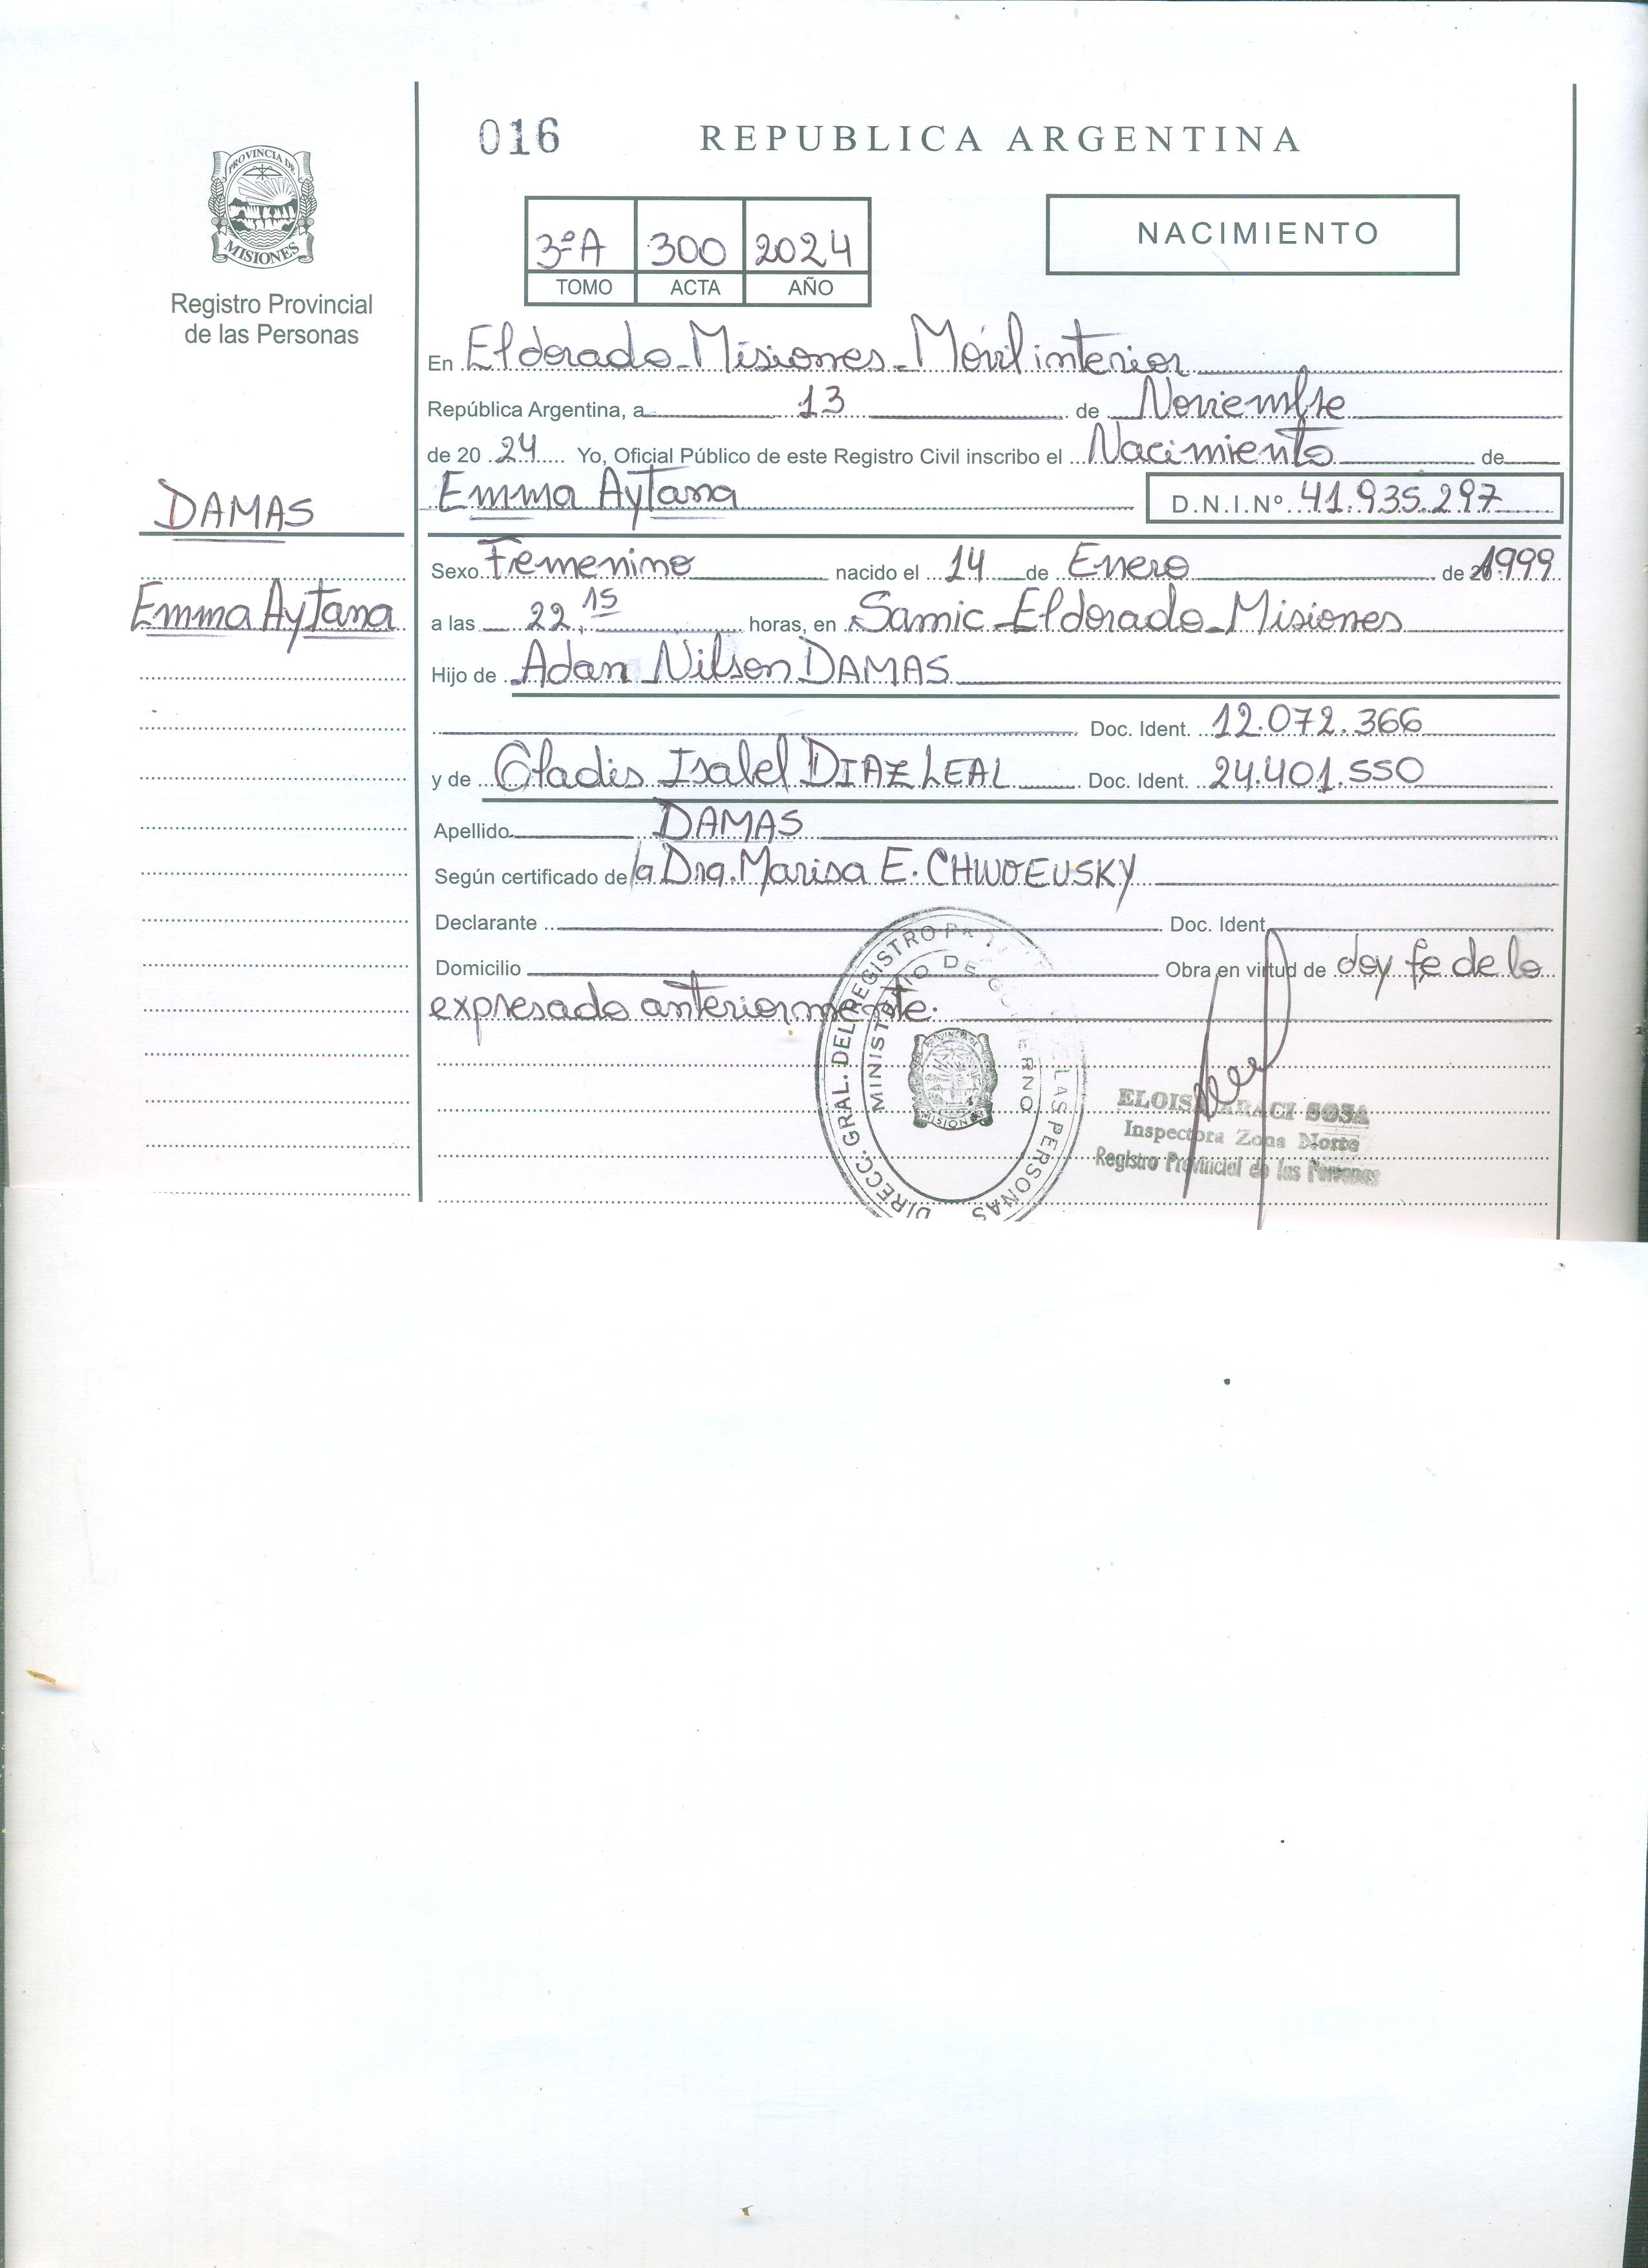 016
REPUBLICA ARGENTINA
PROVINCIA DE
MISIONES
Registro Provincial
de las Personas
3ºA 300 2024
TOMO ACTA AÑO
NACIMIENTO
En Eldorado - Misiones - Móvil interior
República Argentina, a 13 de Noviembre
de 20 24 Yo, Oficial Público de este Registro Civil inscribo el Nacimiento de
DAMAS
Emma Aytana D.N.I.Nº 41.935.297
Sexo Femenino nacido el 14 de Enero de 1999
Emma Aytana
a las 22,15 horas, en Samic - Eldorado - Misiones
Hijo de Adan Nilson DAMAS
Doc. Ident. 12.072.366
y de Gladis Isabel DIAZ LEAL Doc. Ident. 24.401.550
Apellido DAMAS
Según certificado de la Dra. Marisa E. CHWOEUSKY
Declarante Doc. Ident.
Domicilio Obra en virtud de doy fe de lo
expresado anteriormente.
DIRECC. GRAL. DEL REGISTRO DE LAS PERSONAS
MINISTERIO DE GOBIERNO
PROVINCIA DE
MISIONES
ARACI SOSA
Inspectora Zona Norte
Registro Provincial de las Personas